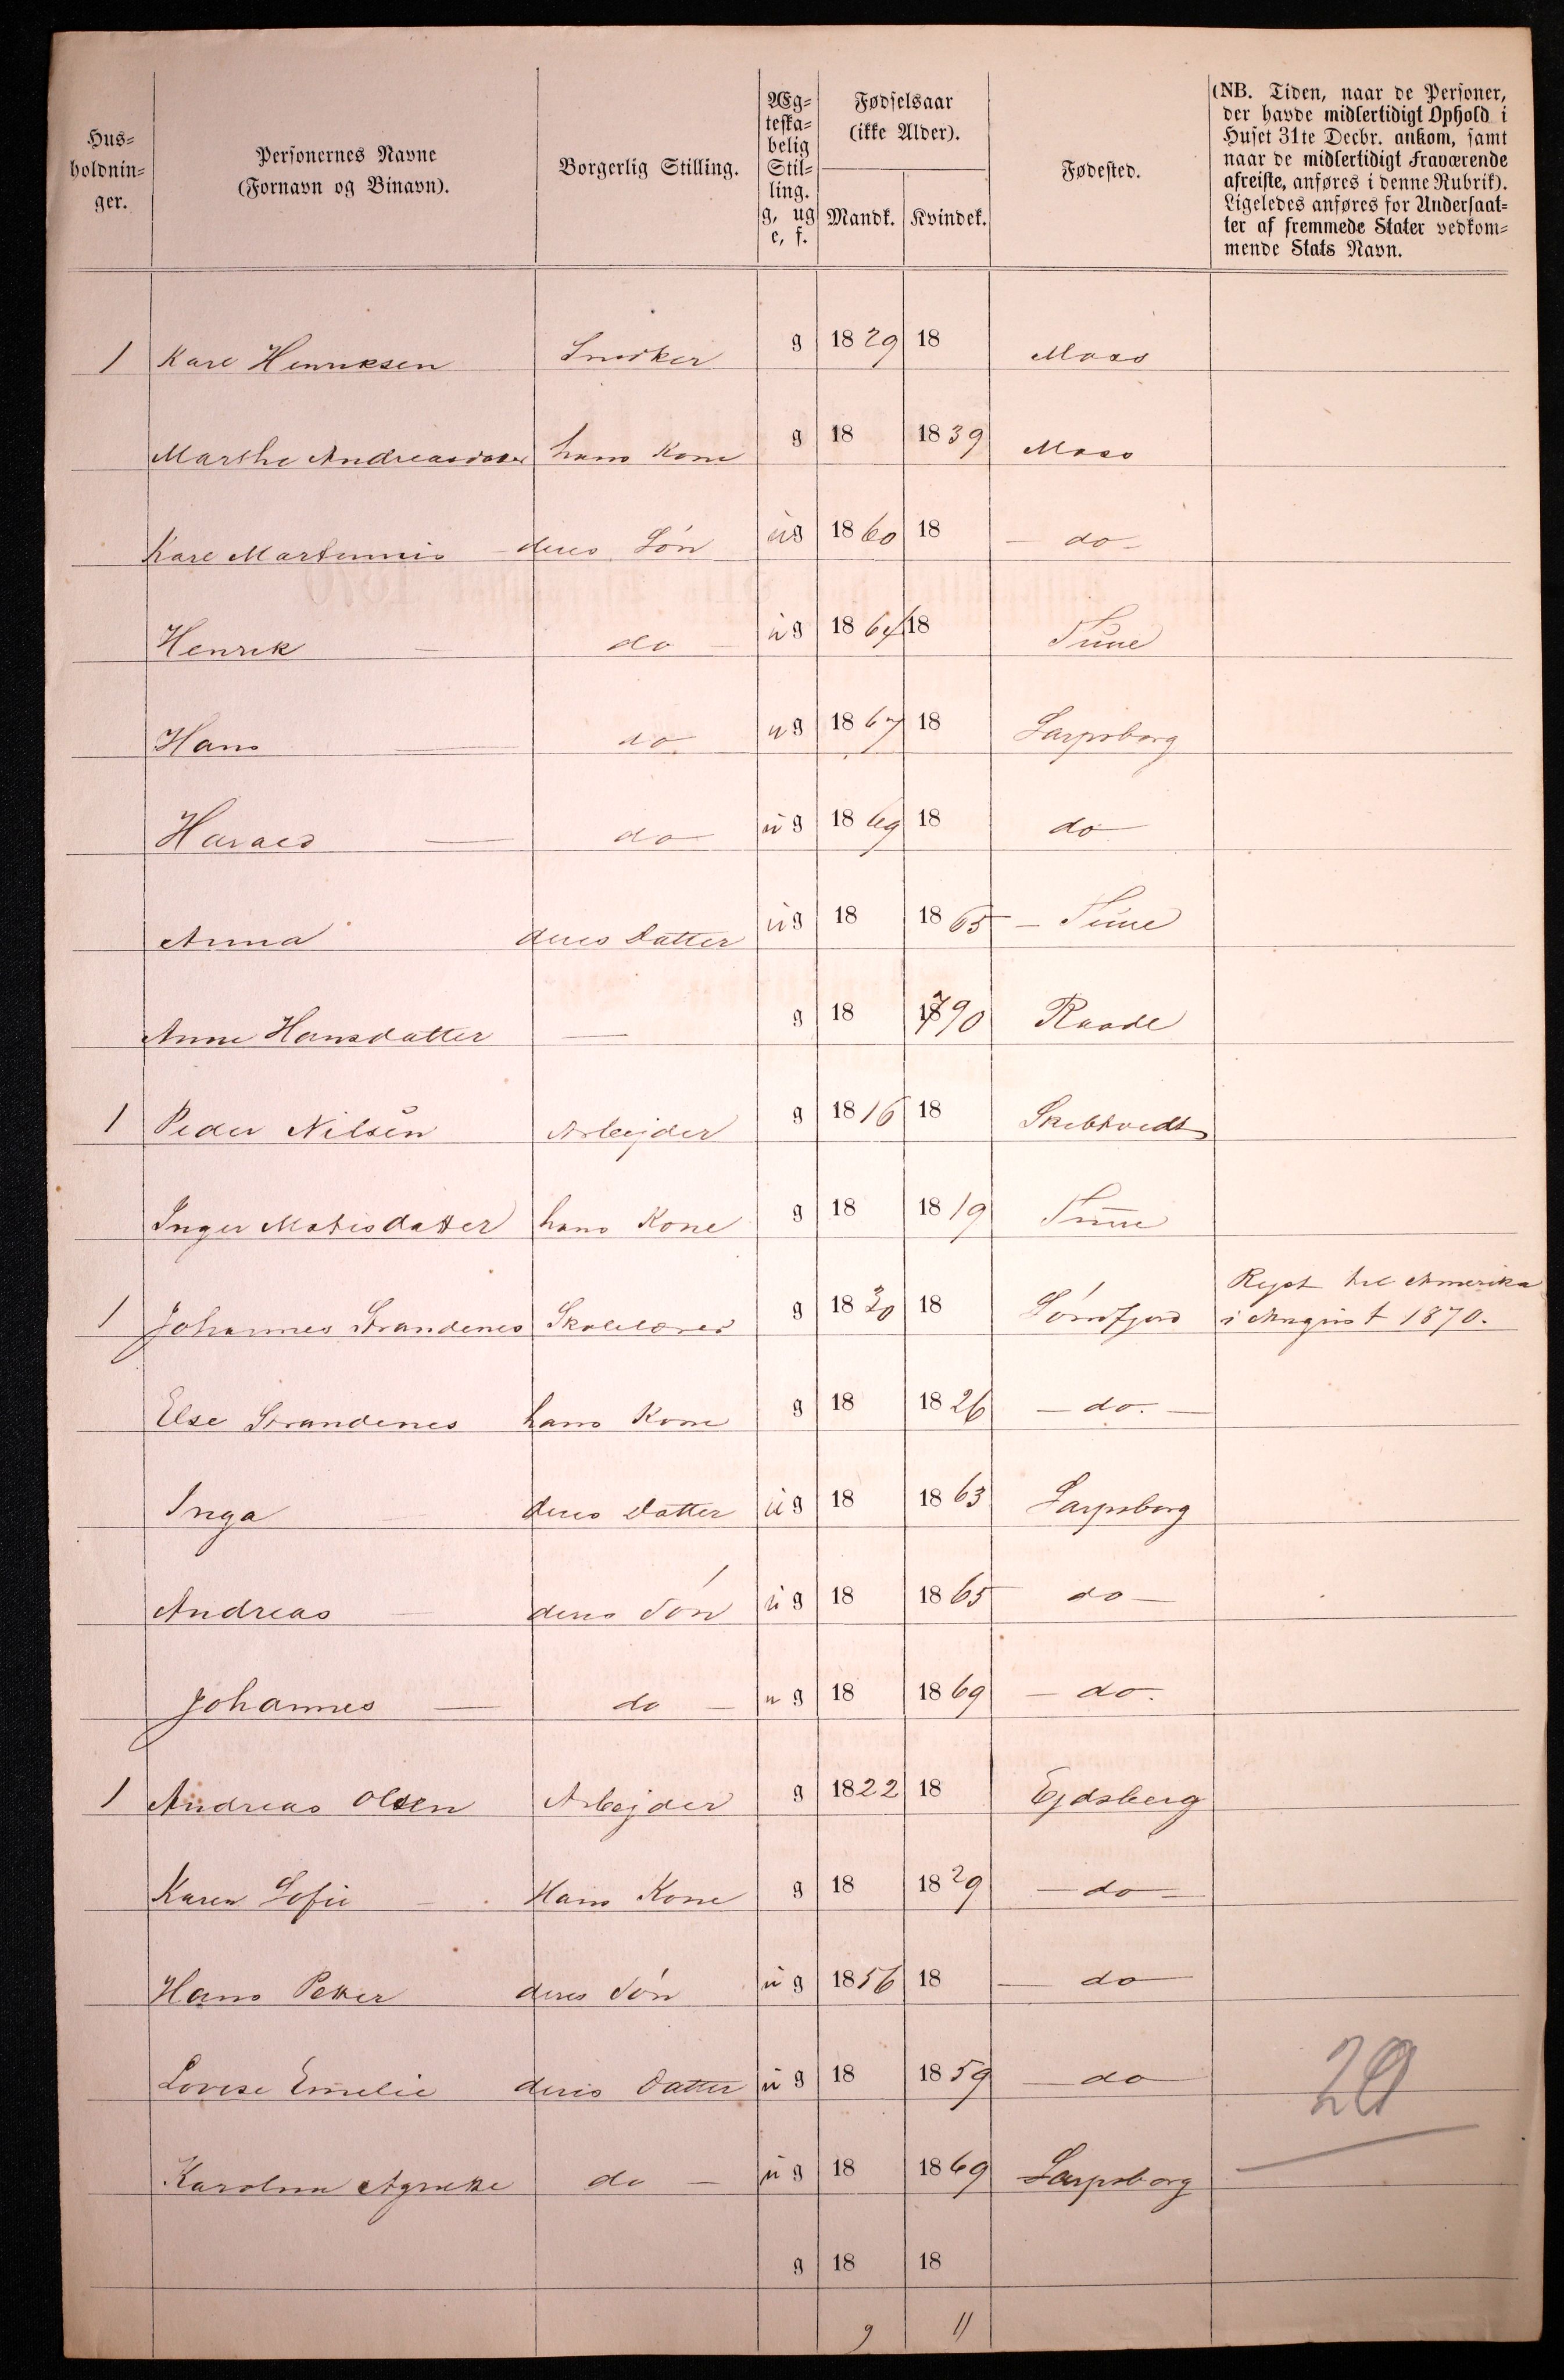 Hus-
holdnin-
ger.
Personernes Navne
(Fornavn og Binavn).
Borgerlig Stilling.
Æg-
teska-
belig
Stil-
ling.
g, ug
e, f.
Fødselsaar
(ikke Alder).
Mandk. Kvindek.
Fødested.
(NB. Tiden, naar de Personer,
der havde midlertidigt Ophold i
Huset 31te Decbr. ankom, samt
naar de midlertidigt Fraværende
afreiste, anføres i denne Rubrik).
Ligeledes anføres for Undersaat-
ter af fremmede Stater vedkom-
mende Stats Navn.
1 Karl Henriksen Snedker g 1829 18 Moss
Marthe Andreasdatter hans Kone g 18 1839 Moss
Karl Martinius deres Søn ug 1860 18 - do -
Henrik - do - ug 1864 18 Tune
Hans - do ug 1867 18 Sarpsborg
Harald - do ug 1869 18 do
Anna deres Datter ug 18 1865 - Tune
Anne Hansdatter - g 18 1790 Raade
1 Peder Nilsen Arbejder g 1816 18 Skibtvedt
Inger Matisdatter hans Kone g 18 1819 Tune
1 Johannes Strandenes Skolelærer g 1830 18 Søndfjord Rejst til Amerika
i August 1870.
Else Strandenes hans Kone g 18 1826 - do. -
Inga deres Datter ug 18 1863 Sarpsborg
Andreas - deres Søn ug 18 1865 do -
Johannes - do - ug 18 1869 - do.
1 Andreas Olsen Arbejder g 1822 18 Ejdsberg
Karen Sofie - Hans Kone g 18 1829 - do -
Hans Petter deres Søn ug 1856 18 - do
Lovise Emelie deres Datter ug 18 1859 - do
20
Karoline do - ug 18 1869 Sarpsborg
g 18 18
9 11